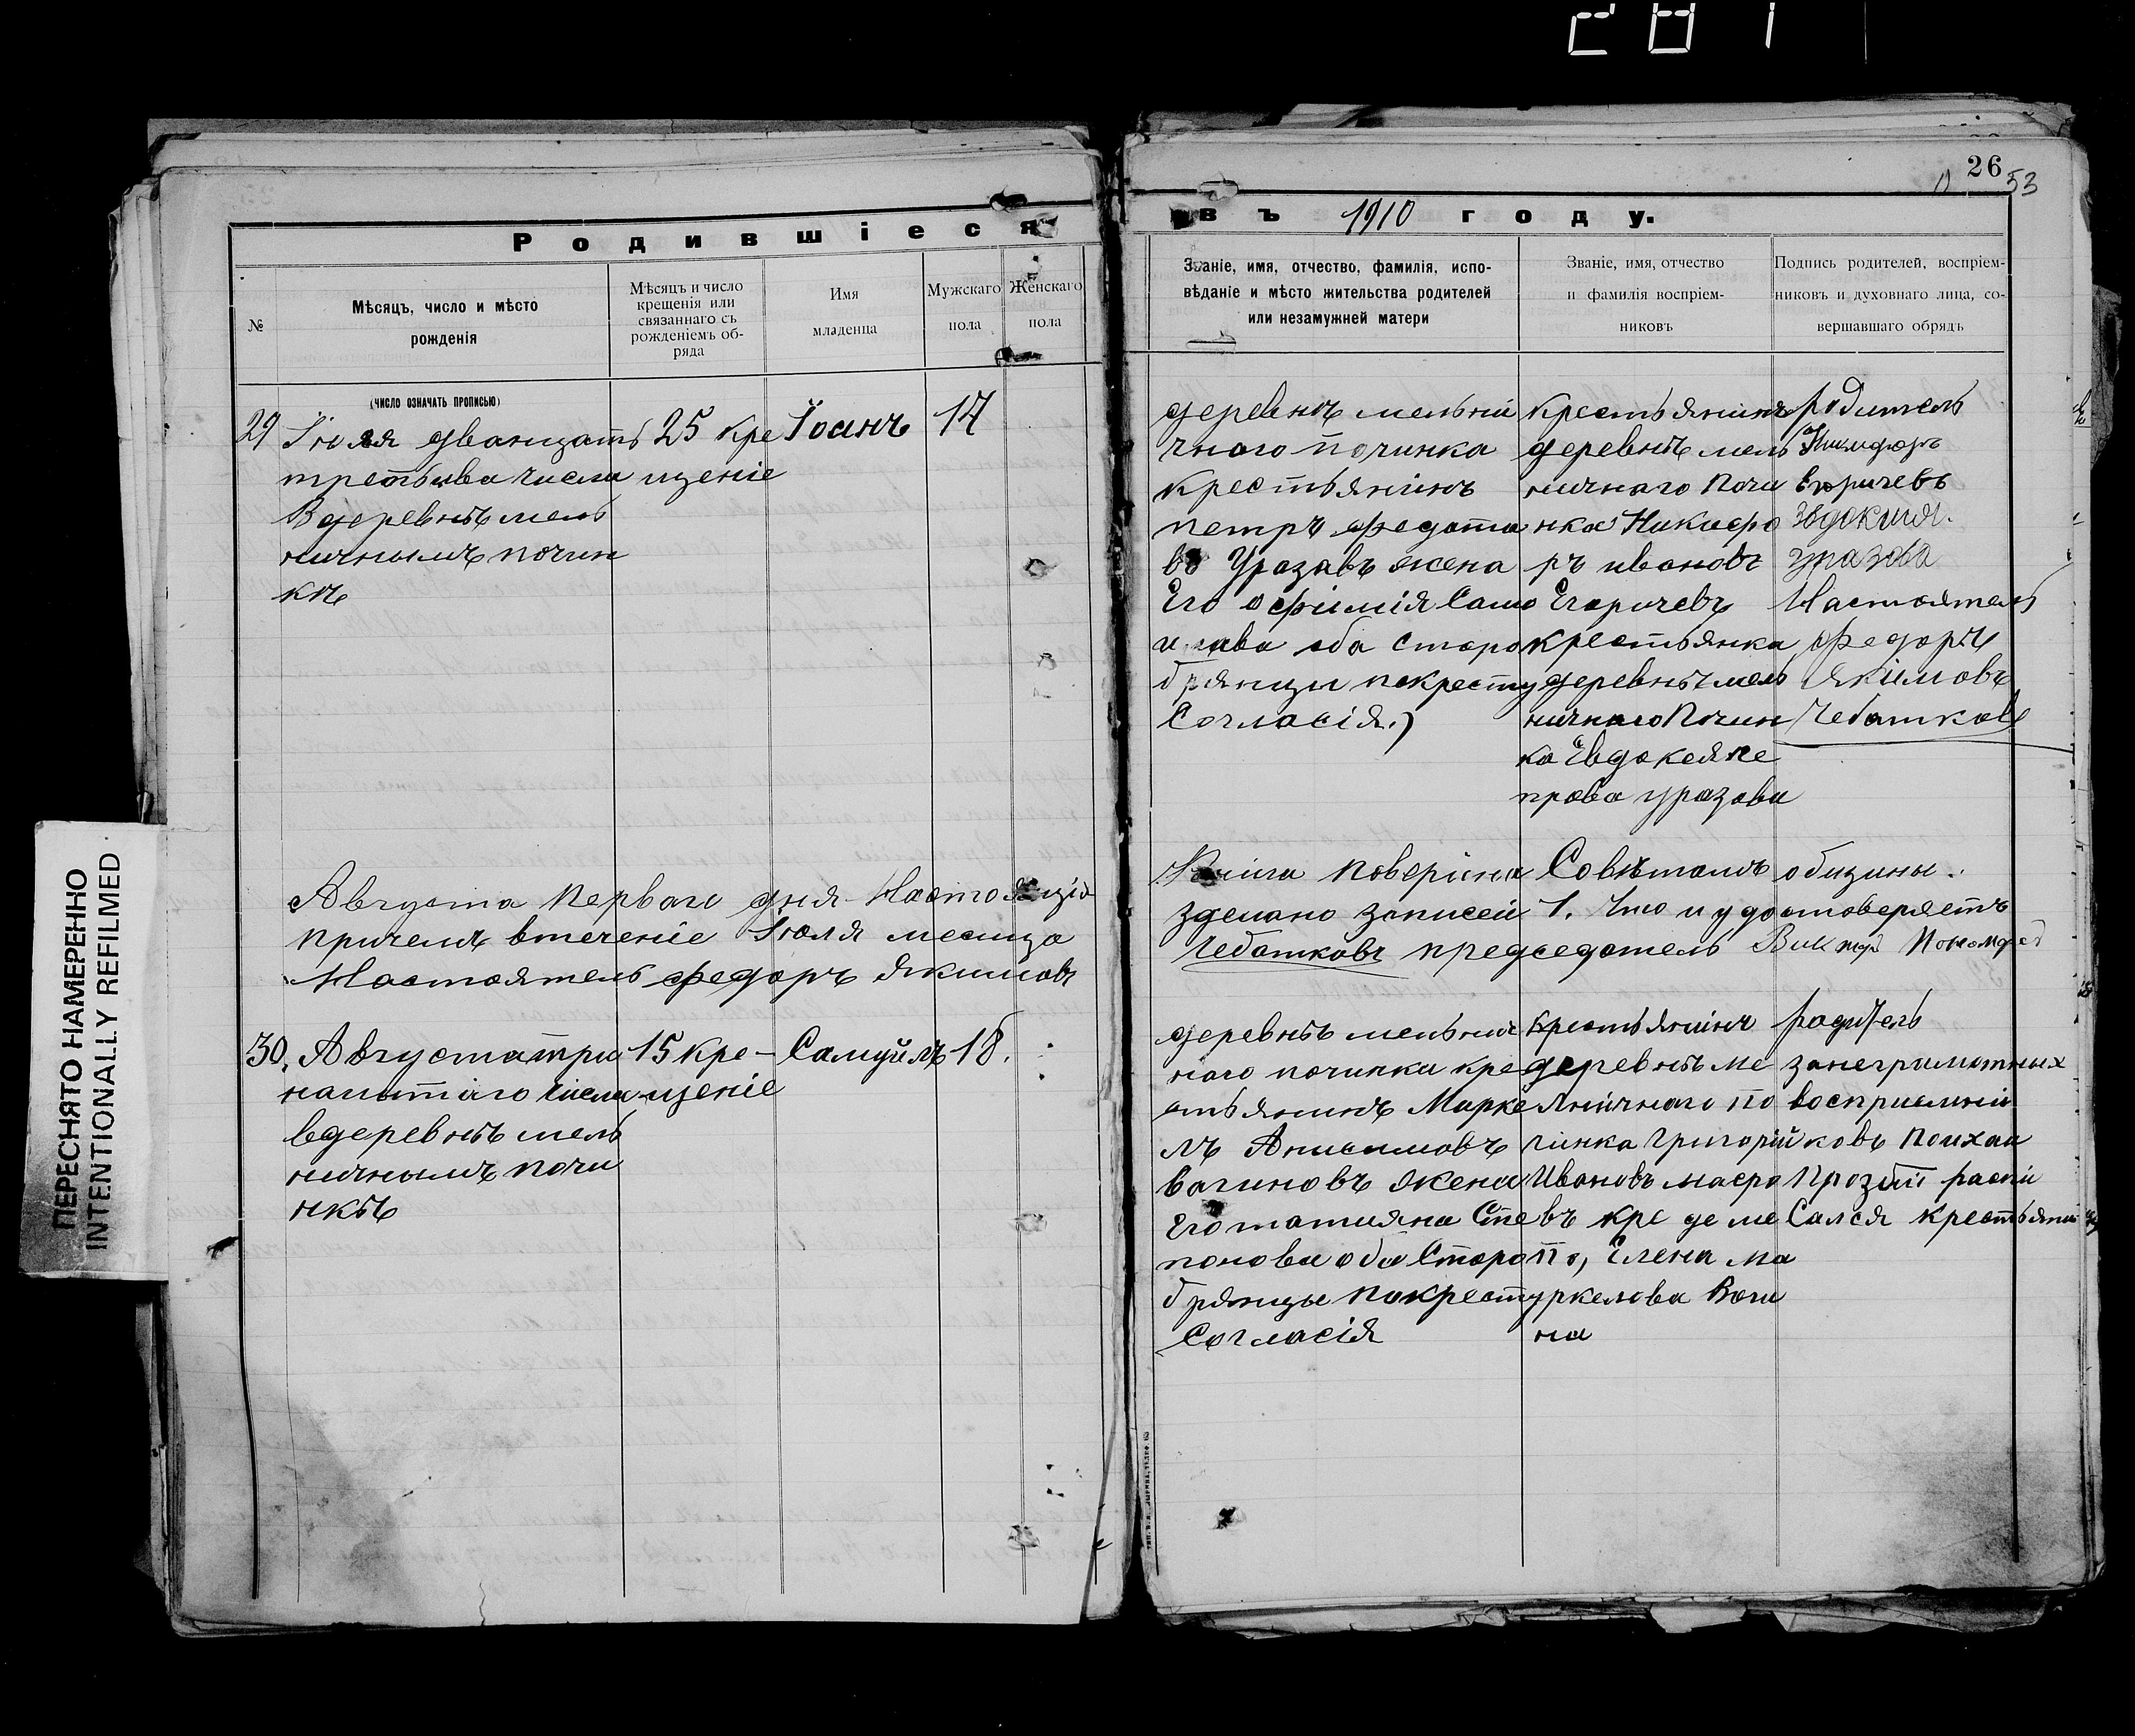 281
26
53
Родившіеся
въ 1910 году.
№
Мѣсяцъ, число и мѣсто
рожденія
(число означать прописью)
Мѣсяцъ и число
крещенія или
связаннаго съ
рожденіемъ об-
ряда
Имя
младенца
Мужскаго
пола
Женскаго
пола
Званіе, имя, отчество, фамилія, испо-
вѣданіе и мѣсто жительства родителей
или незамужней матери
Званіе, имя, отчество
и фамилія воспріем-
никовъ
Подпись родителей, воспріем-
никовъ и духовнаго лица, со-
вершавшаго обрядъ
29
Іюля дванцать
третьива числа
Вдеревнѣ мель
ничнымъ почин
кѣ
25 кре
щеніе
Іоанъ
14
деревнѣ мельни
чного починка
крестьянинъ
петръ федото
въ Уразавъ жена
Его офимія Само
абa старо
брянцы покресту
Согласія.)
крестьянинъ
деревнѣ мель
ничнаго Почи
нка Никифо
ръ ивановъ
Егоричевъ
крестьянка
деревнѣ мель
ничнаго Почин
ка Евдокея пе
трова уразова
родитель
Никифоръ
Егоричевъ
Эвдокия.
уразова
Настоятель
Федоръ
Якимовъ
Чебатковъ
Августа Перваго дня
причемъ втечение Іюля месица
Настоятель федоръ Якимовъ
Книга поверина Совѣтомъ общины.
зделано записей 1. Что и удостоверяетъ
Чебатковъ председатель Виктор
30.
Августа три
нацтіаго числа
вдеревнѣ мель
ничнымъ почи
нкѣ
15 кре-
щеніе
Самуйлъ
18.
деревнѣ мельнич
наго починка кре
стьянинъ Марке
лъ Анисимовъ
вагиновъ жена
Его татияна Сте
понова оба Старо
брянцы покресту
Согласія
Крестьянинъ
деревнѣ ме
льничнаго по
чинка Григорій
Ивановъ
въ кре де ме
по, Елена ма
ркелова Ваги
на
родитель
занеграмотных
восприемни
ковъ поихаи
прозбѣ распи
Сался крестьяни
ПЕРЕСНЯТО НАМЕРЕННО
INTENTIONALLY REFILMED